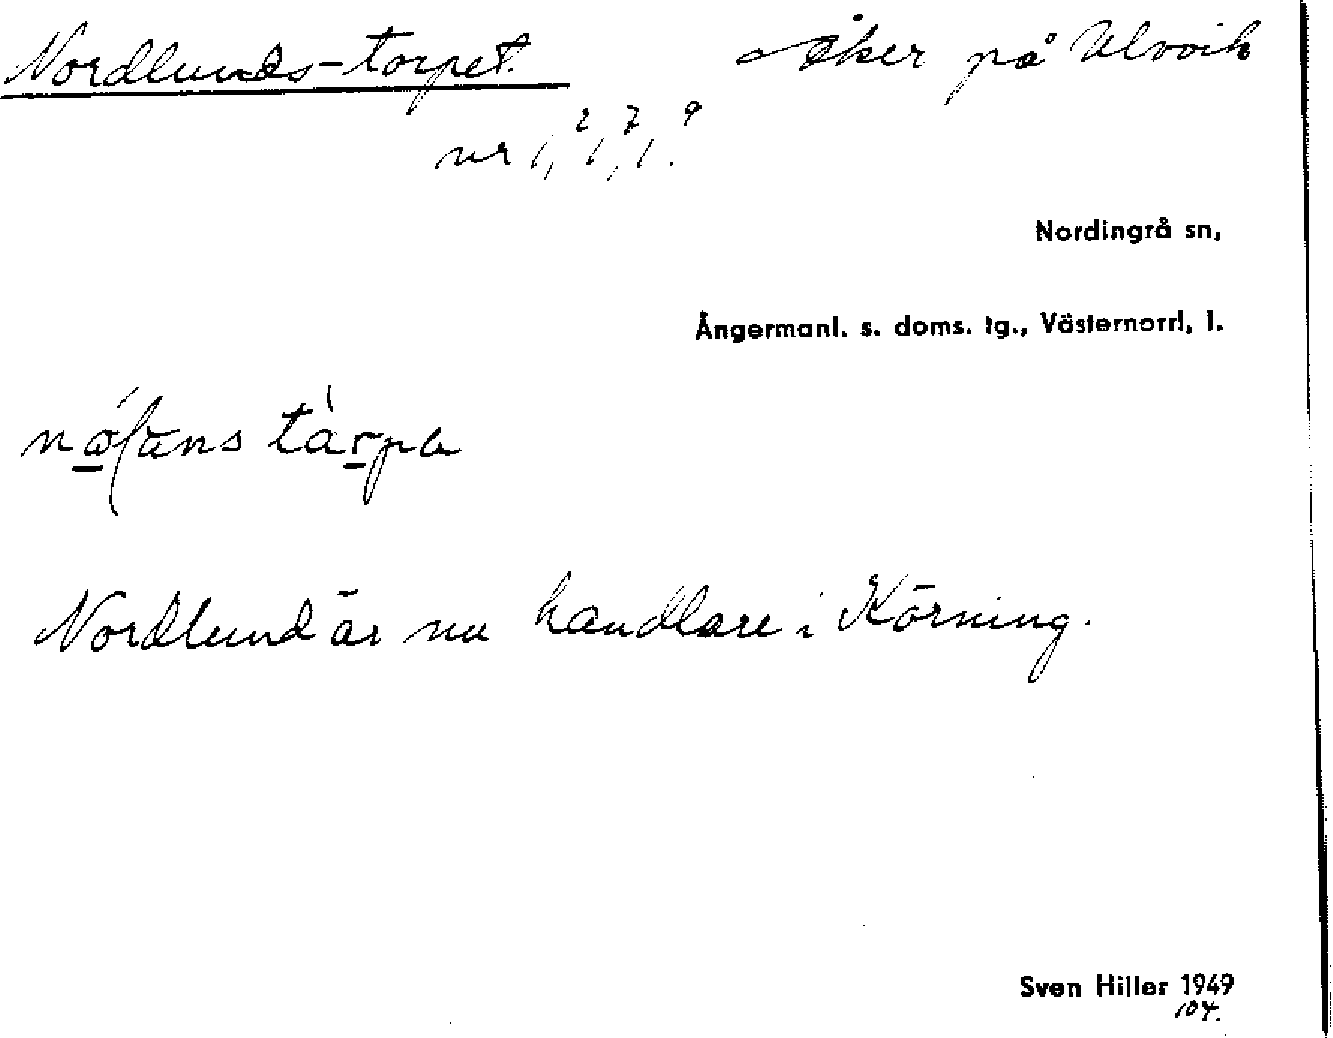 Nordlunds-torpet. Åker på Ulvvik
nr 1,² 1,⁷ 1.⁹
Nordingrå sn,
Ångermanl. s. doms. tg., Västernorrl. l.
Nordlund är nu handlare i Körning.
Sven Hiller 1949
104.